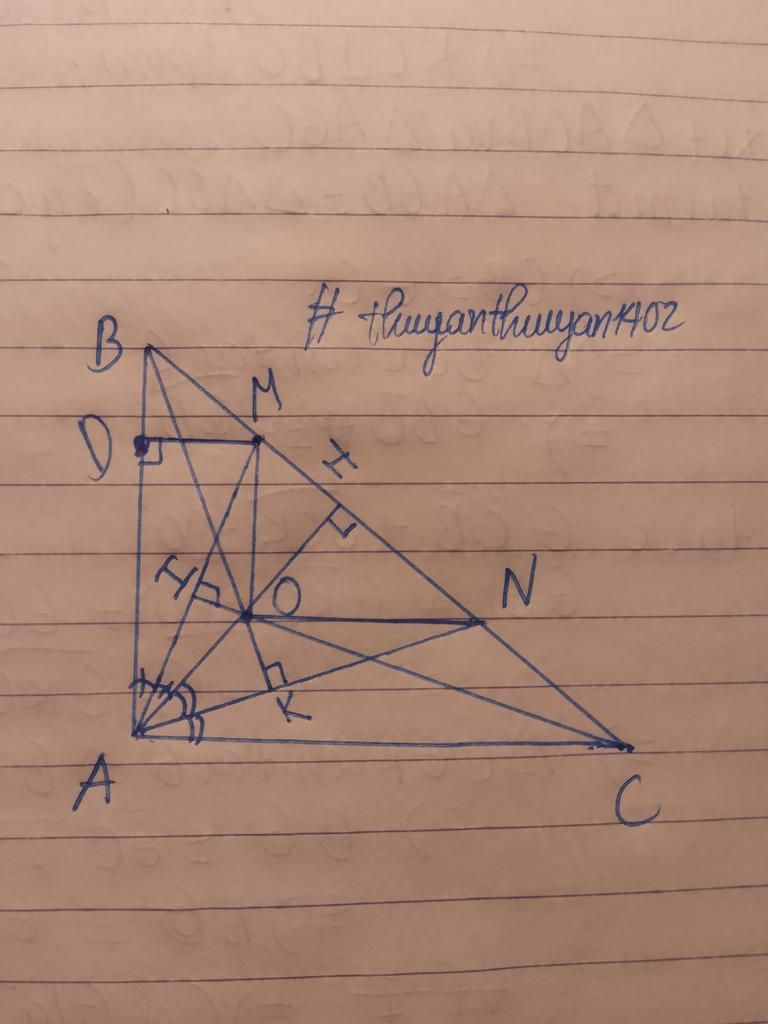 # thuyanthuyan1402
B
M
D
I
H
O
N
K
A
C